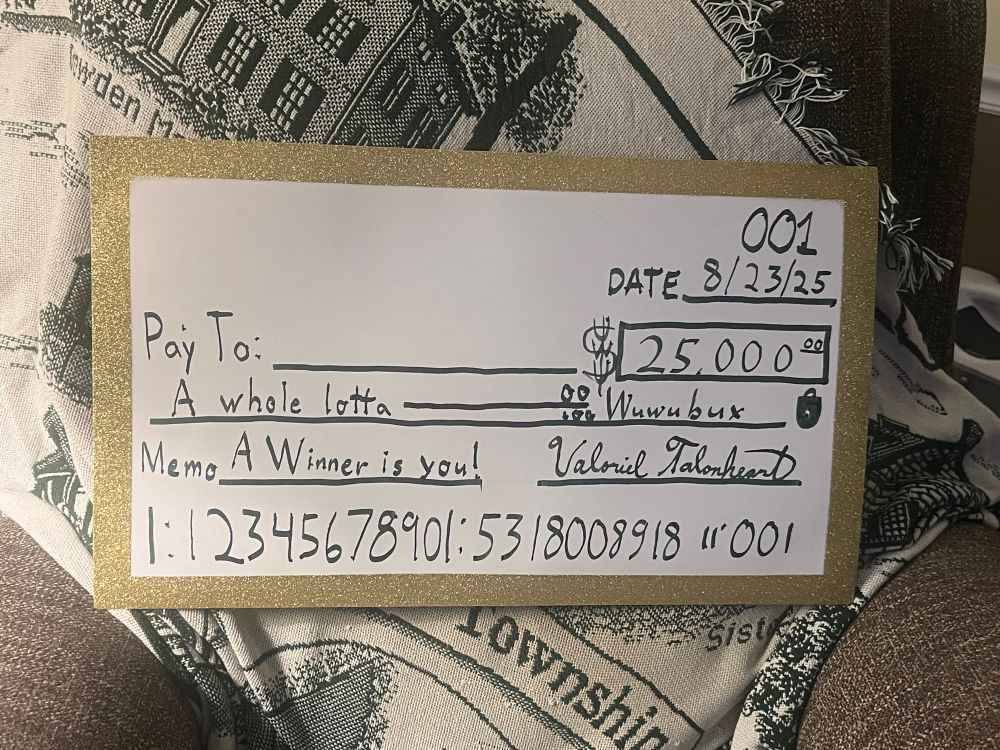 owden M
001
DATE 8/23/25
Pay To:
25,000 00
A whole lotta 00/100 Wuwubux
Memo A Winner is you!
Valoriel Talonheart
|:1234567890|:5318008918 "001
Township
Siste